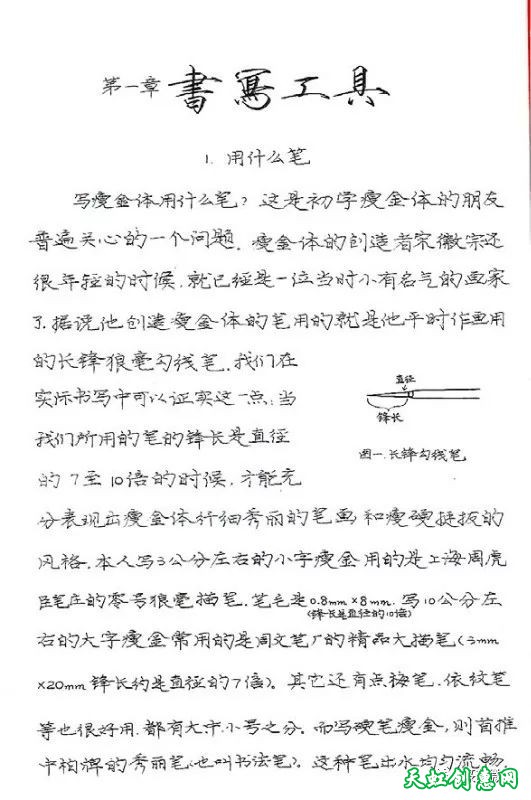 第一章 書寫工具
1. 用什么笔
写瘦金体用什么笔？这是初学瘦金体的朋友
普遍关心的一个问题。瘦金体的创造者宋徽宗还
很年轻的时候，就已经是一位当时小有名气的画家
了。据说他创造瘦金体的笔用的就是他平时作画用
的长锋狼毫勾线笔。我们在
实际书写中可以证实这一点：当
我们所用的笔的锋长是直径
的7至10倍的时候，才能充
直径
锋长
图一.长锋勾线笔
分表现出瘦金体纤细秀丽的笔画和瘦硬挺拔的
风格。本人写3公分左右的小字瘦金用的是上海周虎
臣笔庄的零号狼毫描笔，笔毛是0.8mm×8mm.写10公分左
(锋长是直径的10倍)
右的大字瘦金常用的是周文笔厂的精品大描笔(3mm
×20mm锋长约是直径的7倍)。其它还有点梅笔、依纹笔
等也很好用，都有大中小号之分。而写硬笔瘦金，则首推
中柏牌的秀丽笔(也叫书法笔)。这种笔出水均匀流畅
天虹创意网